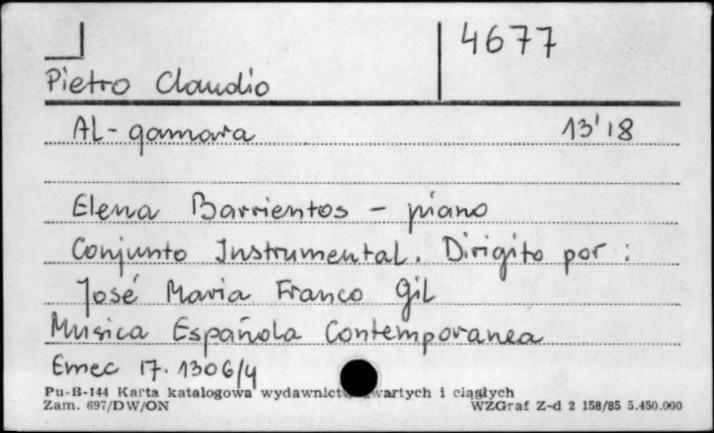 4677
Pietro Claudio
Al-qamara 13'18
Elena Barrientos - piano
Conjunto Instrumental. Dirigito por :
José Maria Franco Gil
Musica Española Contemporanea
Emec 17. 1306/4
Pu-B-144 Karta katalogowa wydawnictw zwartych i ciągłych
Zam. 697/DW/ON WZGraf Z-d 2 158/85 5.450.000